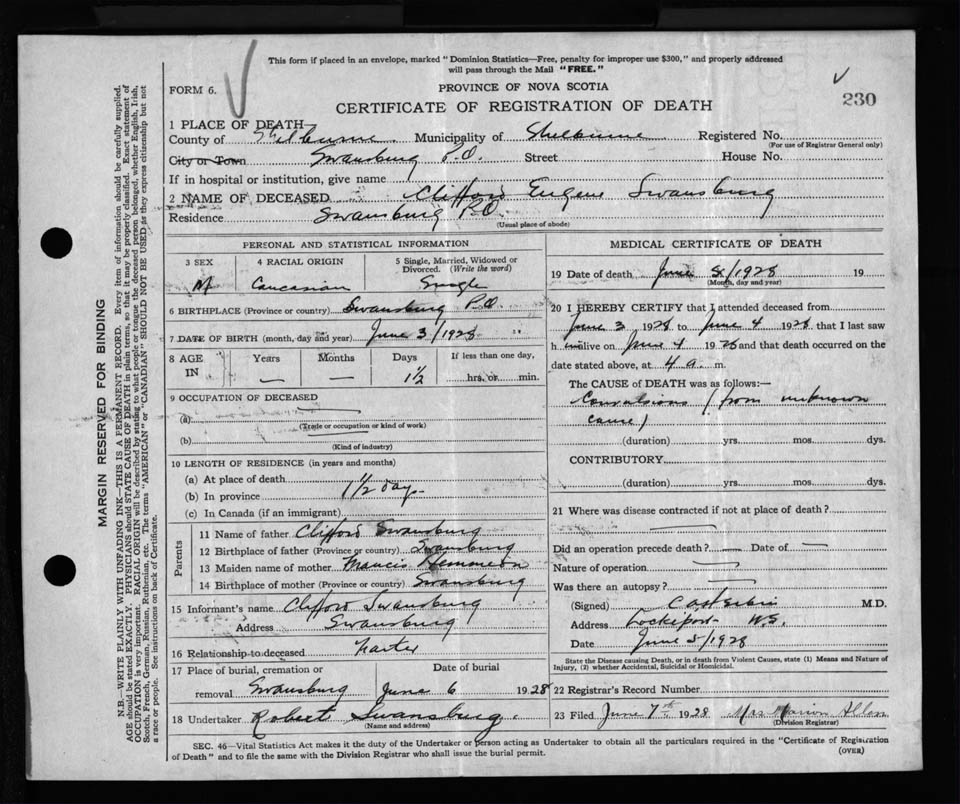 This form if placed in an envelope, marked "Dominion Statistics—Free, penalty for improper use $300," and properly addressed
will pass through the Mail "FREE."
FORM 6.
PROVINCE OF NOVA SCOTIA
CERTIFICATE OF REGISTRATION OF DEATH
230
1 PLACE OF DEATH
County of Shelburne Municipality of Shelburne Registered No.
(For use of Registrar General only)
City or Town Swansburg P.O. Street House No.
If in hospital or institution, give name
2 NAME OF DECEASED Clifford Eugene Swansburg
Residence Swansburg P.O.
(Usual place of abode)
PERSONAL AND STATISTICAL INFORMATION
3 SEX 4 RACIAL ORIGIN 5 Single, Married, Widowed or Divorced. (Write the word)
M Caucasian Single
6 BIRTHPLACE (Province or country) Swansburg P.O.
7 DATE OF BIRTH (month, day and year) June 3/1928
8 AGE IN Years Months Days If less than one day,
— — 1½ hrs. or min.
9 OCCUPATION OF DECEASED
(a)
(Trade or occupation or kind of work)
(b)
(Kind of industry)
10 LENGTH OF RESIDENCE (in years and months)
(a) At place of death
(b) In province 1½ days
(c) In Canada (if an immigrant)
Parents
11 Name of father Clifford Swansburg
12 Birthplace of father (Province or country) Swansburg
13 Maiden name of mother Francis Hemmeon
14 Birthplace of mother (Province or country) Swansburg
15 Informant's name Clifford Swansburg
Address Swansburg
16 Relationship to deceased
17 Place of burial, cremation or removal Swansburg Date of burial June 6 1928
18 Undertaker Robert Swansburg.
(Name and address)
MEDICAL CERTIFICATE OF DEATH
19 Date of death June /1928 19
(Month, day and year)
20 I HEREBY CERTIFY that I attended deceased from
June 3 1928 to June 4 1928 that I last saw
h im alive on June 4 1928 and that death occurred on
date stated above, at 4 a m.
The CAUSE of DEATH was as follows:—
Convulsions (from unknown
cause)
(duration) yrs. mos. dys.
CONTRIBUTORY
(duration) yrs. mos. dys.
21 Where was disease contracted if not at place of death?
Did an operation precede death? — Date of —
Nature of operation
Was there an autopsy?
(Signed) M.D.
Address Lockeport N.S.
Date June 5/1928
State the Disease causing Death, or in death from Violent Causes, state (1) Means and Nature of
Injury, (2) whether Accidental, Suicidal or Homicidal.
22 Registrar's Record Number
23 Filed June 7th 1928 Mrs Marion Allen
(Division Registrar)
SEC. 46—Vital Statistics Act makes it the duty of the Undertaker or person acting as Undertaker to obtain all the particulars required in the "Certificate of Registration
of Death" and to file the same with the Division Registrar who shall issue the burial permit.
(OVER)
MARGIN RESERVED FOR BINDING
N.B.—WRITE PLAINLY WITH UNFADING INK—THIS IS A PERMANENT RECORD. Every item of information should be carefully supplied.
AGE should be stated EXACTLY. PHYSICIANS should STATE CAUSE OF DEATH in plain terms, so that it may be properly classified. Exact statement of
OCCUPATION is very important. RACIAL ORIGIN will be described by stating to what people or tongue the deceased person belonged, whether English, Irish,
Scotch, French, German, Russian, Ruthenian, etc. The terms "AMERICAN" or "CANADIAN" SHOULD NOT BE USED as they express citizenship but not
a race or people. See instructions on back of Certificate.